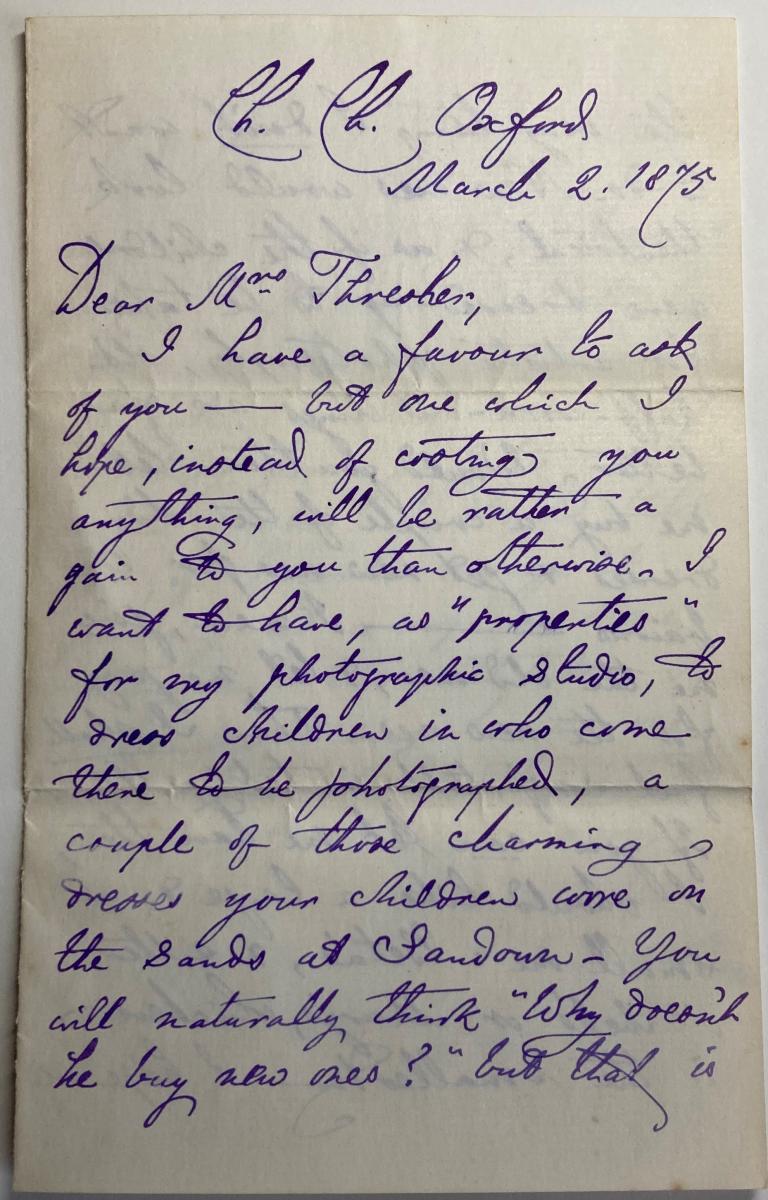 Ch. Ch. Oxford
March 2. 1875
Dear Mrs Thresher,
I have a favour to ask
of you — but one which I
hope, instead of costing you
anything, will be rather a
gain to you than otherwise. I
want to have, as "properties"
for my photographic studio, to
dress children in who come
there to be photographed, a
couple of those charming
dresses your children wore on
the sands at Sandown – You
will naturally think "Why doesn't
he buy new ones?" but that is